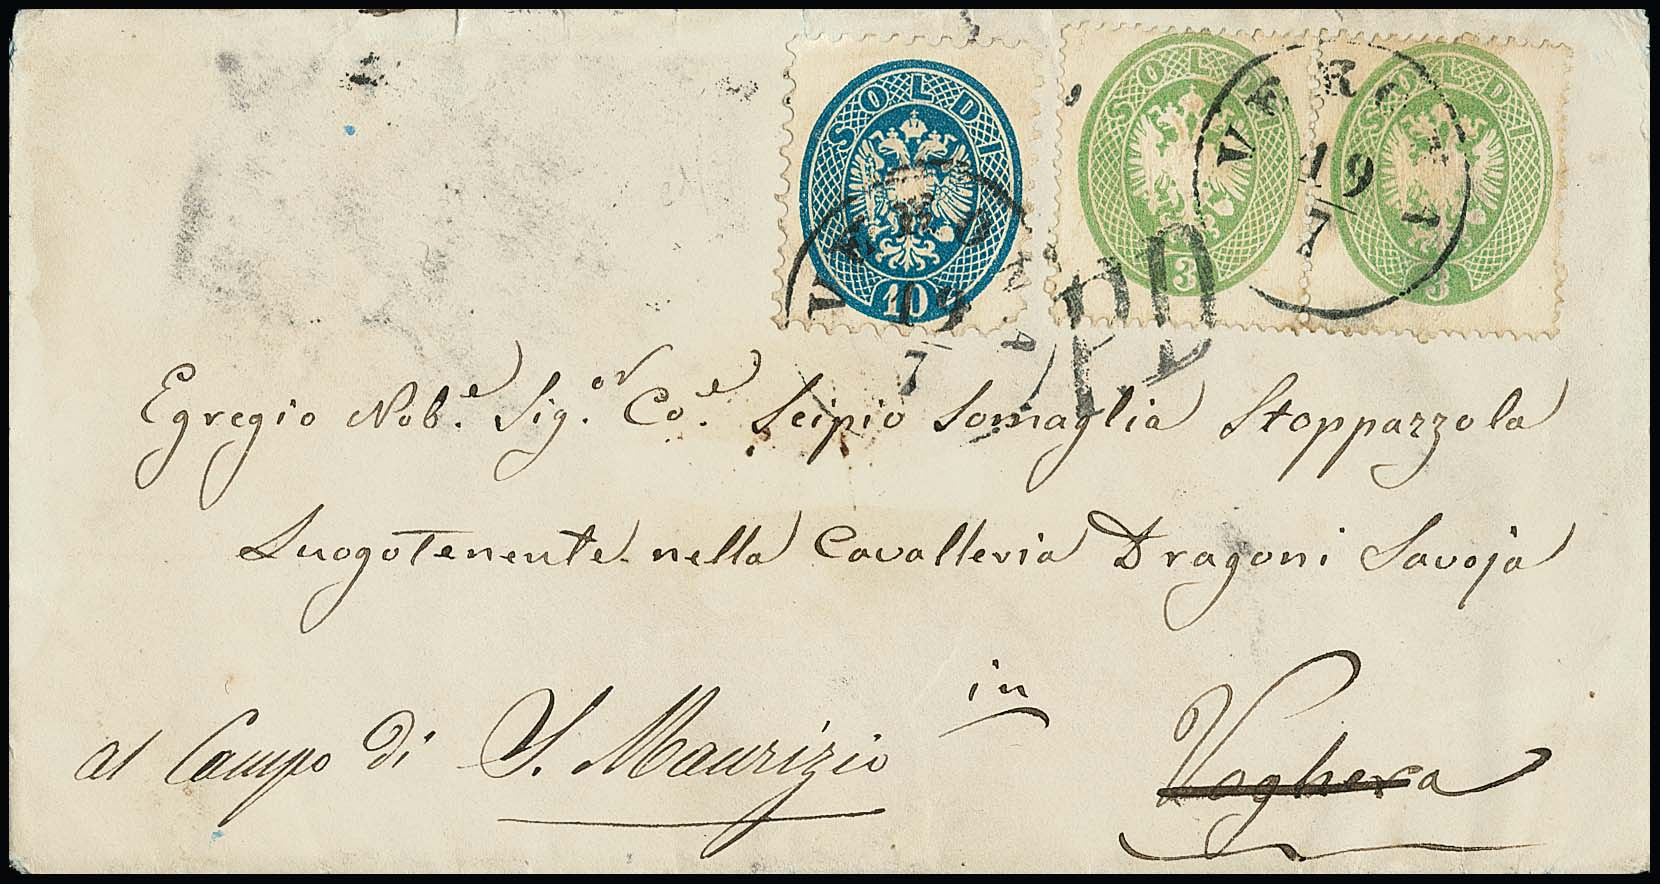 SOLDI 10
SOLDI 3
SOLDI 3
VERONA
19
7
VERONA
19
7
PD
Egregio Nob.e Sig.or Co.e Scipio Somaglia Stoppazzola
Luogotenente nella Cavalleria Dragoni Savoja
in
al Campo di S. Maurizio
Voghera